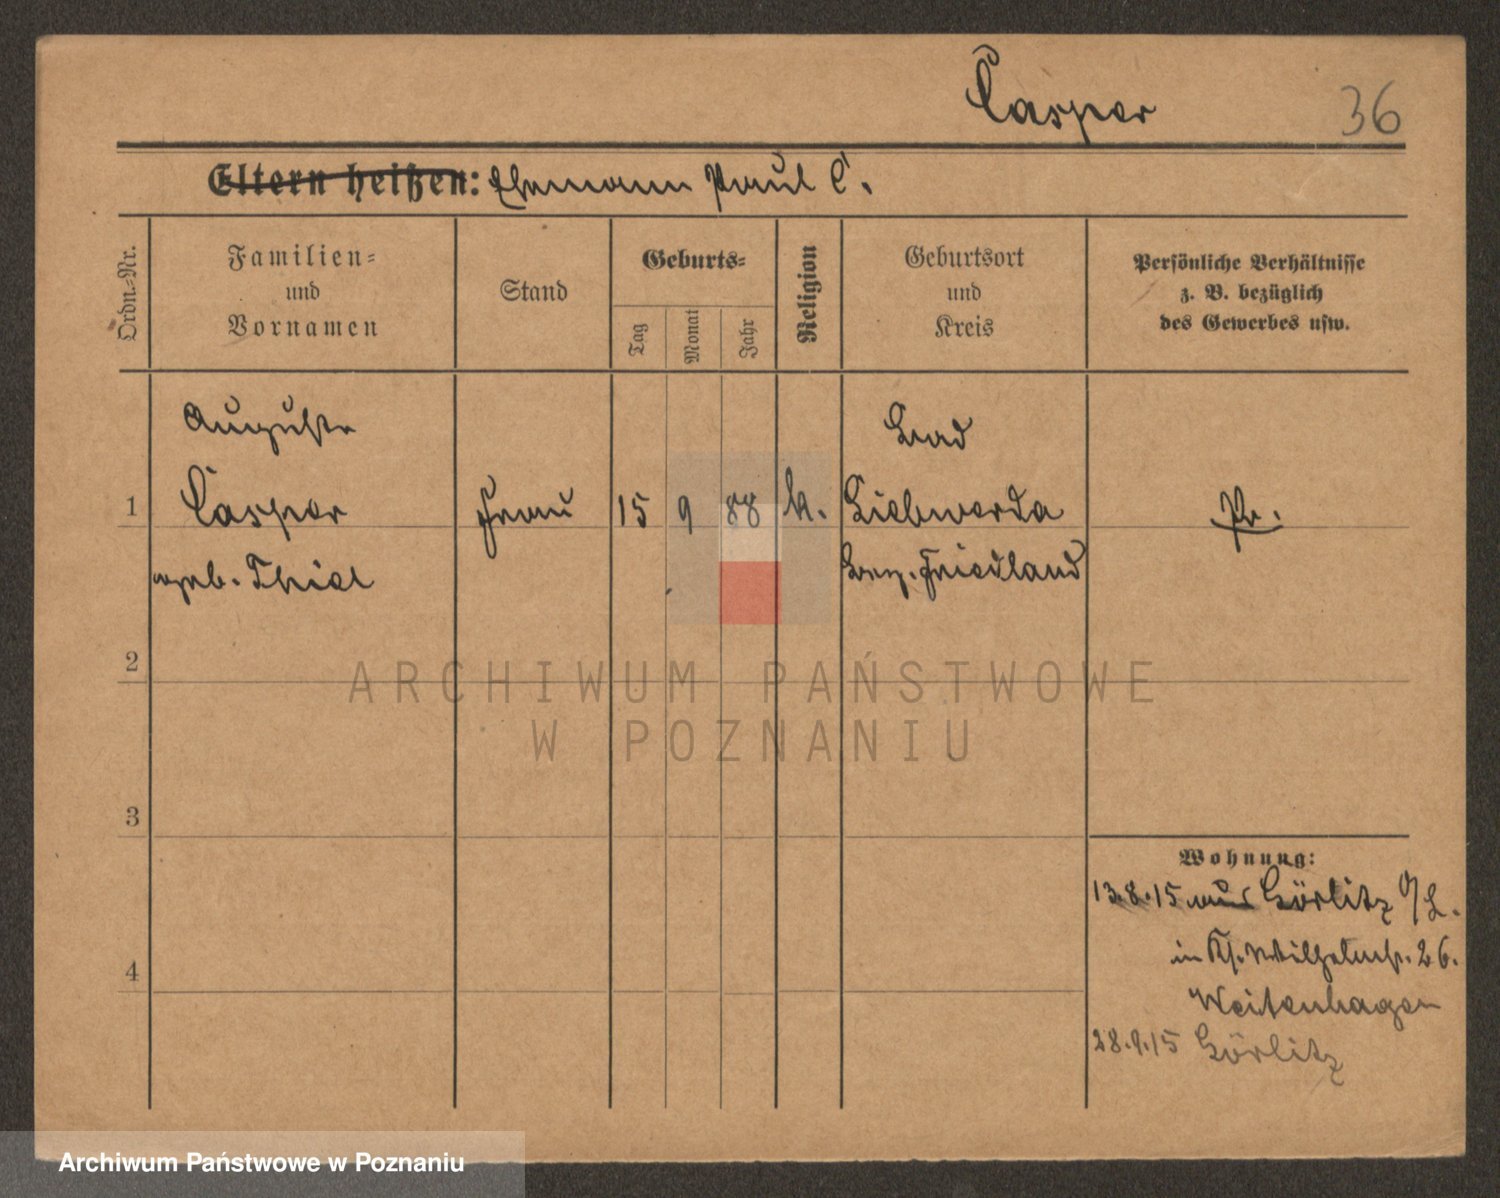 Casper
36
Eltern heißen: Ehemann Paul C.
Ordn.-Nr.
Familien-
und
Vornamen
Stand
Geburts-
Tag
Monat
Jahr
Religion
Geburtsort
und
Kreis
Persönliche Verhältnisse
z. B. bezüglich
des Gewerbes usw.
Auguste
Casper
geb. Thiel
1
Frau
15
9
88
k.
Bad
Liebwerda
Bez. Friedland
Pr.
2
ARCHIWUM PAŃSTWOWE
W POZNANIU
3
4
Wohnung:
13.8.15 aus Görlitz O/L.
in Wilhelmstr. 26.
Weitenhagen
28.9.15 Görlitz
Archiwum Państwowe w Poznaniu